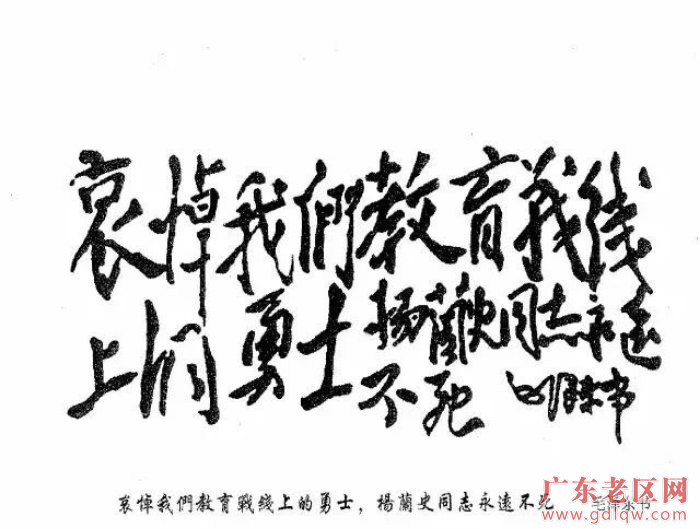 哀悼我們教育戰线
上的勇士楊蘭史同志永远
不死 毛澤东书
哀悼我們教育戰线上的勇士，楊蘭史同志永遠不死 毛泽东书
广东老区网
www.gdlqw.com